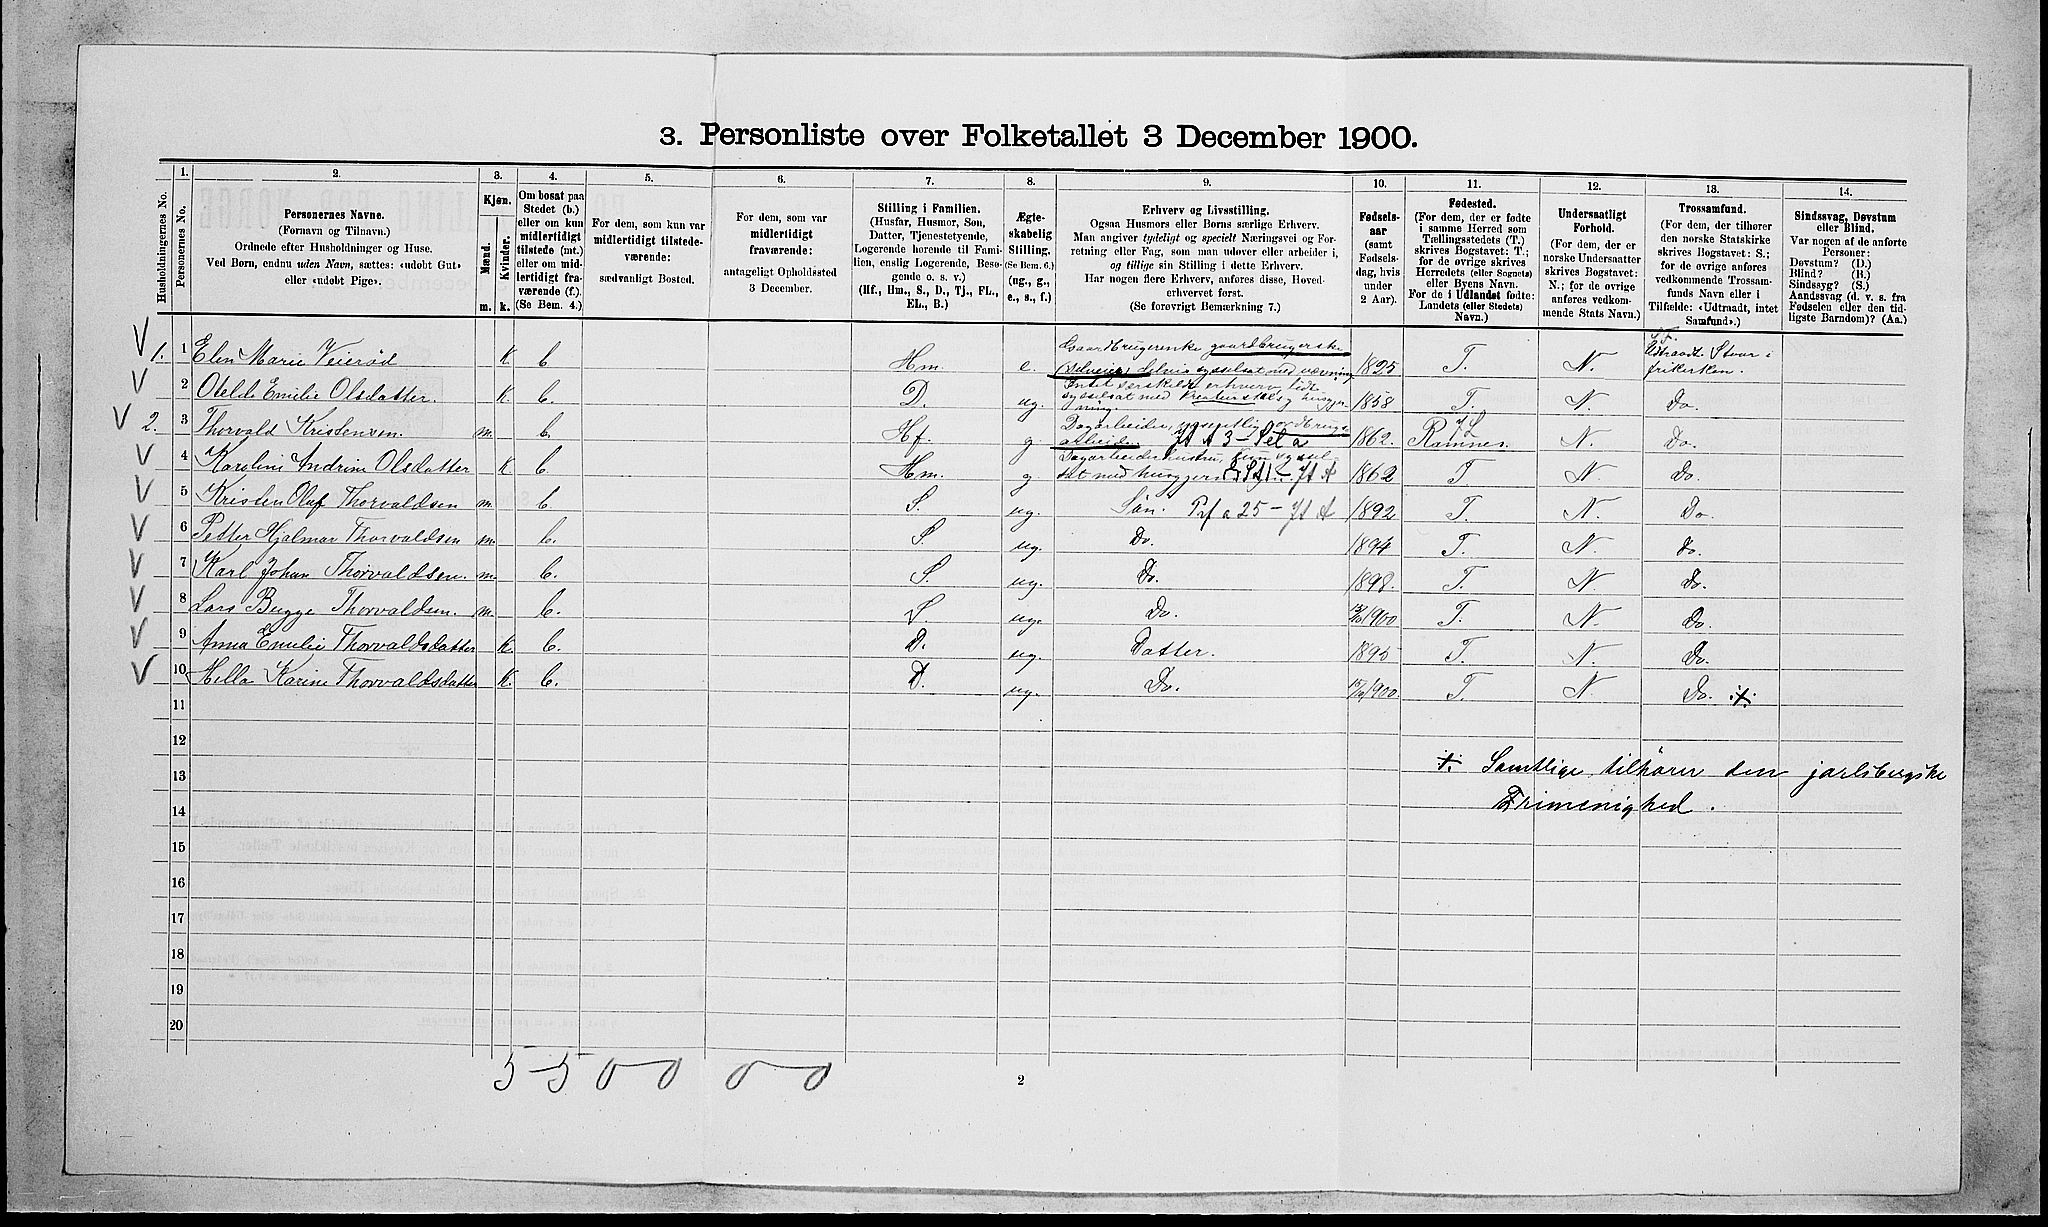 3. Personliste over Folketallet 3 December 1900.
Husholdningernes No.
1.
Personernes No.
2.
Personernes Navne.
(Fornavn og Tilnavn.)
Ordnede efter Husholdninger og Huse.
Ved Børn, endnu uden Navn, sættes: «udøbt Gut»
eller «udøbt Pige».
3.
Kjøn.
Mænd.
Kvinder.
m. k.
4.
Om bosat paa
Stedet (b.)
eller om kun
midlertidigt
tilstede (mt.)
eller om mid-
lertidigt fra-
værende (f.)
(Se Bem. 4.)
5.
For dem, som kun var
midlertidigt tilstede-
værende:
sædvanligt Bosted.
6.
For dem, som var
midlertidigt
fraværende:
antageligt Opholdssted
3 December.
7.
Stilling i Familien.
(Husfar, Husmor, Søn,
Datter, Tjenestetyende,
Logerende hørende til Fami-
lien, enslig Logerende, Besø-
gende o. s. v.)
(Hf., Hm., S., D., Tj., FL.,
EL., B.)
8.
Ægte-
skabelig
Stilling.
(Se Bem. 6.)
(ug., g.,
e., s., f.)
9.
Erhverv og Livsstilling.
Ogsaa Husmors eller Børns særlige Erhverv.
Man angiver tydeligt og specielt Næringsvei og For-
retning eller Fag, som man udøver eller arbeider i,
og tillige sin Stilling i dette Erhverv.
Har nogen flere Erhverv, anføres disse, Hoved-
erhvervet først.
(Se forøvrigt Bemærkning 7.)
10.
Fødsels-
aar
(samt
Fødsels-
dag, hvis
under
2 Aar).
11.
Fødested.
(For dem, der er fødte
i samme Herred som
Tællingsstedets (T.)
skrives Bogstavet: T.;
for de øvrige skrives
Herredets (eller Sognets)
eller Byens Navn.
For de i Udlandet fødte:
Landets (eller Stedets)
Navn.)
12.
Undersaatligt
Forhold.
(For dem, der er
norske Undersaatter
skrives Bogstavet:
N.; for de øvrige
anføres vedkom-
mende Stats Navn.)
13.
Trossamfund.
(For dem, der tilhører
den norske Statskirke
skrives Bogstavet: S.;
for de øvrige anføres
vedkommende Trossam-
funds Navn eller i
Tilfælde: «Udtraadt, intet
Samfund».)
14.
Sindssvag, Døvstum
eller Blind.
Var nogen af de anførte
Personer:
Døvstum? (D.)
Blind? (B.)
Sindssyg? (S.)
Aandssvag (d. v. s. fra
Fødselen eller den tid-
ligste Barndom)? (Aa.)
1. 1 Elen Marie Veierød K b Hm. e. Gaardbrugerenke gaardbrugerske (Selveier) delvis sysselsat med vævning 1825 T. N. Udtraadt. Staar i frikirken.
2 Otelde Emilie Olsdatter. K. b. D. ug. Intet særskilt erhverv, sysselsat med kreaturstel 1858 T. N. Do.
2. 3 Thorvald Kristensen. m. b. Hf. g. Dagarbeider, jordbrugs arbeide. 1862. Ramnes. N. Do.
4 Karolini Andrine Olsdatter K b. Hm. g. 1862 T N. Do.
5 Kristen Oluf Thorvaldsen m. b S. ug. Søn. 1892 T. N. Do
6 Petter Hjalmar Thorvaldsen m. b. S. ug. Do. 1894 T. N. Do.
7 Karl Johan Thorvaldsen. m. b. S. ug. Do. 1898. T. N. Do.
8 Lars Bugge Thorvaldsen. m. b. S. ug. Do. 1900 T. N. Do.
9 Anna Emilie Thorvaldsdatter K. b. D. ug. Datter. 1895 T. N. Do.
10 Hella Karine Thorvaldsdatter K. b. D. ug. Do. 1900. T. N Do.
11
12
13 Samtlige tilhører den jarlsbergske
14 Frimenighed.
15
16
17
18
19
20
5 5 0 0 0 0
2